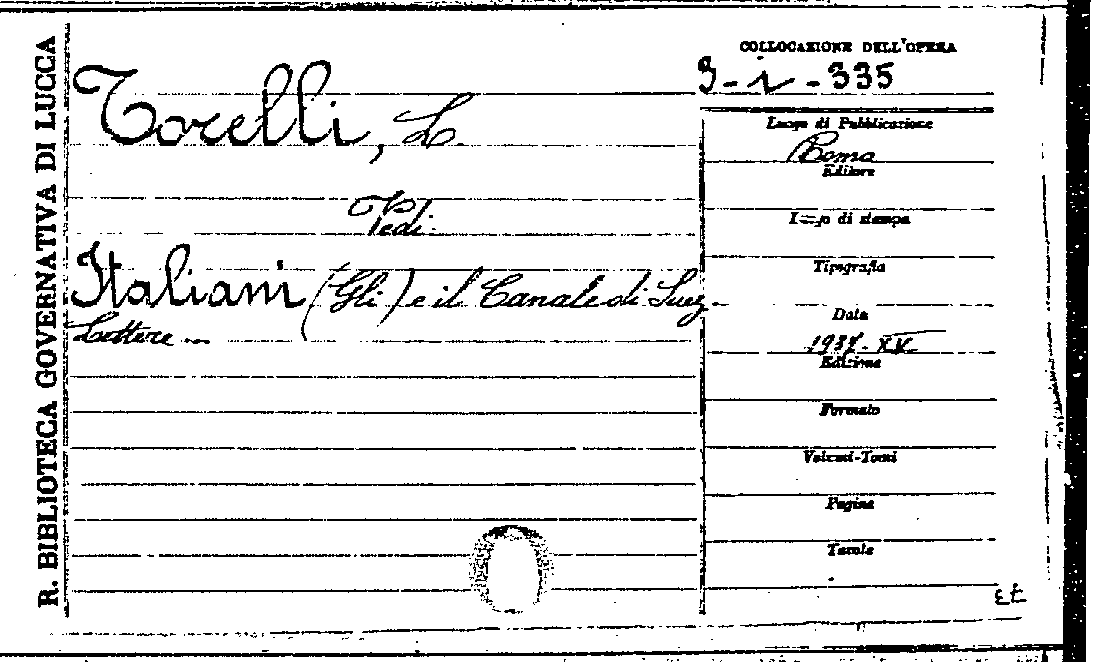 R. BIBLIOTECA GOVERNATIVA DI LUCCA
Torelli, L.
Vedi:
Italiani (Gli) e il Canale di Suez.
Lettere ...
COLLOCAZIONE DELL'OPERA
9-i-335
Luogo di Pubblicazione
Roma
Editore
Luogo di stampa
Tipografia
Data
1937-XV
Edizione
Formato
Volumi-Tomi
Pagine
Tavole